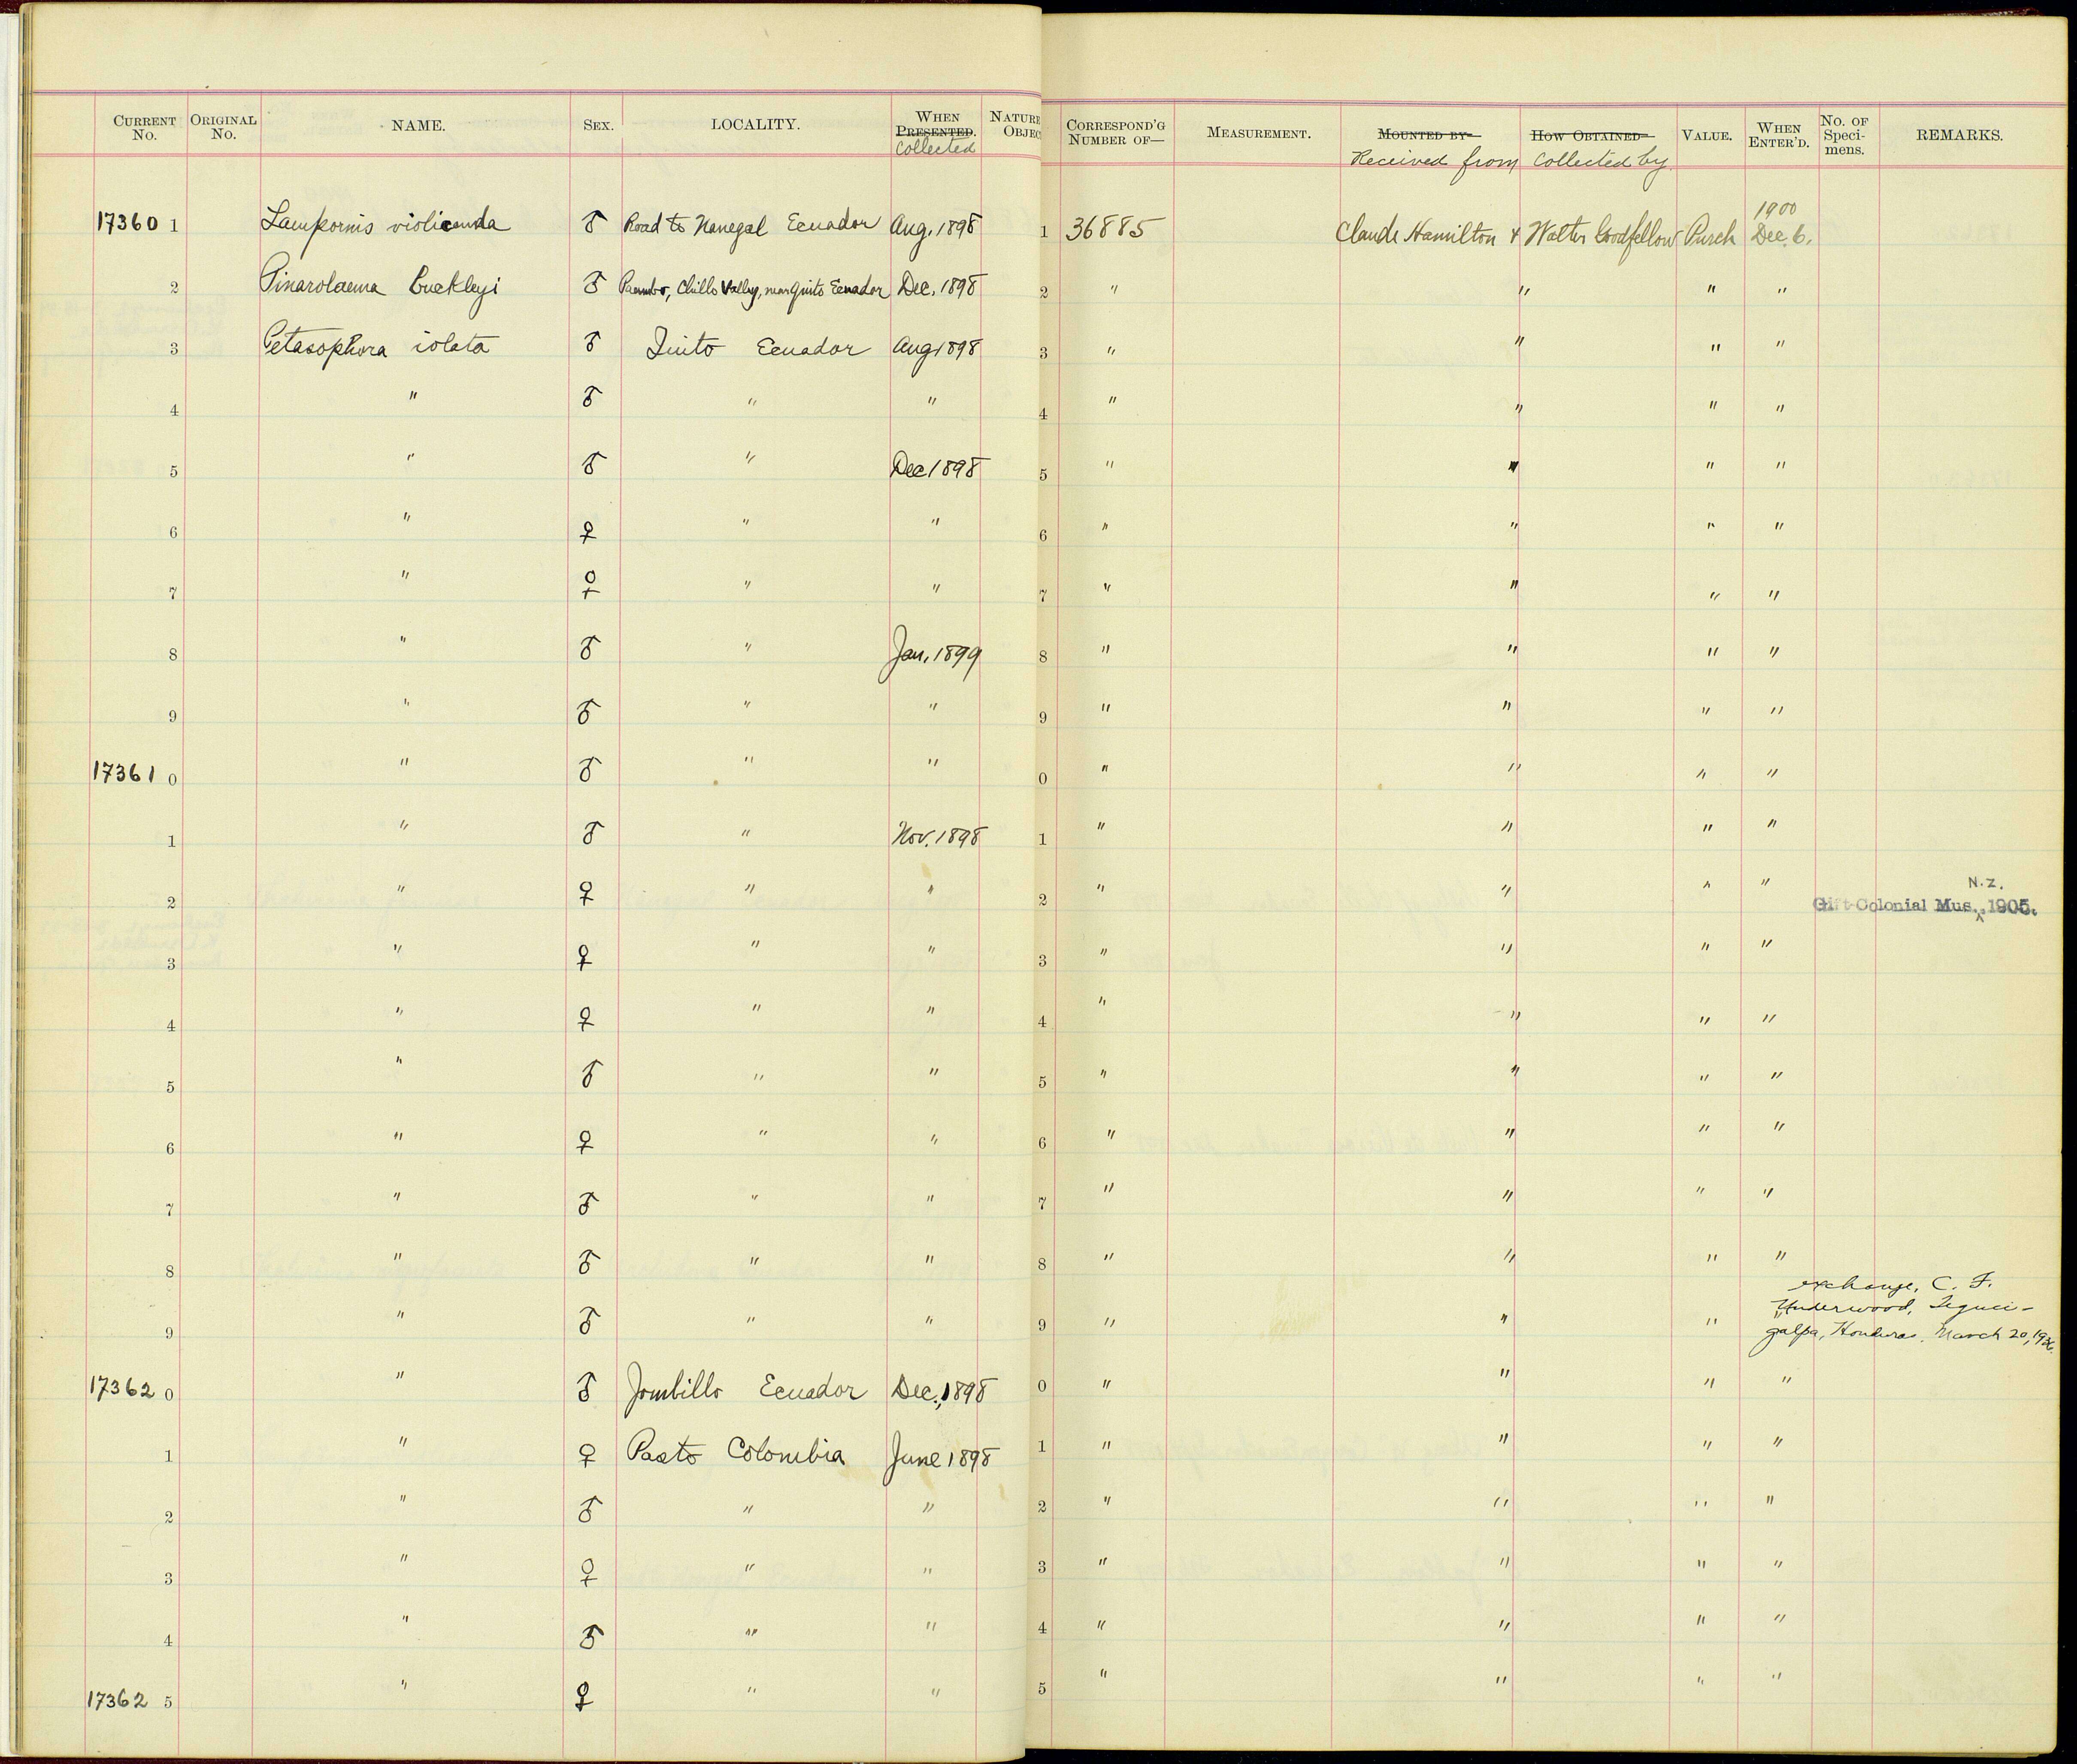 CURRENT No. ORIGINAL No. NAME. SEX. LOCALITY. WHEN PRESENTED. Collected NATURE OBJEC CORRESPOND'G NUMBER OF— MEASUREMENT. MOUNTED BY Received from HOW OBTAINED Collected by VALUE. WHEN ENTER'D. No. OF Speci-mens. REMARKS.
17360 1 Lampornis violicauda ♂ Road to Nanegal Ecuador Aug. 1898 1 36885 Claude Hamilton & Walter Goodfellow Purch 1900 Dec. 6.
2 Pinarolaema buckleyi ♂ Paumbo, Chillo Valley, near Quito Ecuador Dec. 1898 2 " " " "
3 Petasophora iolata ♂ Quito Ecuador Aug 1898 3 " " " "
4 " ♂ " " 4 " " " "
5 " ♂ " Dec 1898 5 " " " "
6 " ♀ " " 6 " " " "
7 " ♀ " " 7 " " " "
8 " ♂ " Jan. 1899 8 " " " "
9 " ♂ " " 9 " " " "
17361 0 " ♂ " " 0 " " " "
1 " ♂ " Nov. 1898 1 " " " "
2 " ♀ " " 2 " " " " Gift Colonial Mus. N.Z. 1905.
3 " ♀ " " 3 " " " "
4 " ♀ " " 4 " " " "
5 " ♂ " " 5 " " " "
6 " ♀ " " 6 " " " "
7 " ♂ " " 7 " " " "
8 " ♂ " " 8 " " " "
9 " ♂ " " 9 " " " " exchange, C. F. Underwood, Teguci-galpa, Honduras, March 20,
17362 0 " ♂ Jombillo Ecuador Dec., 1898 0 " " " "
1 " ♀ Pasto Colombia June 1898 1 " " " "
2 " ♂ " " 2 " " " "
3 " ♀ " " 3 " " " "
4 " ♂ " " 4 " " " "
17362 5 " ♀ " " 5 " " " "